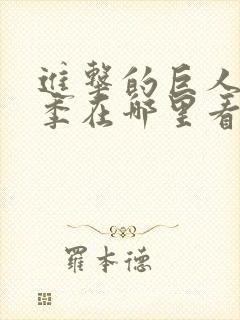 進擊的巨人
季在哪里看
羅本德